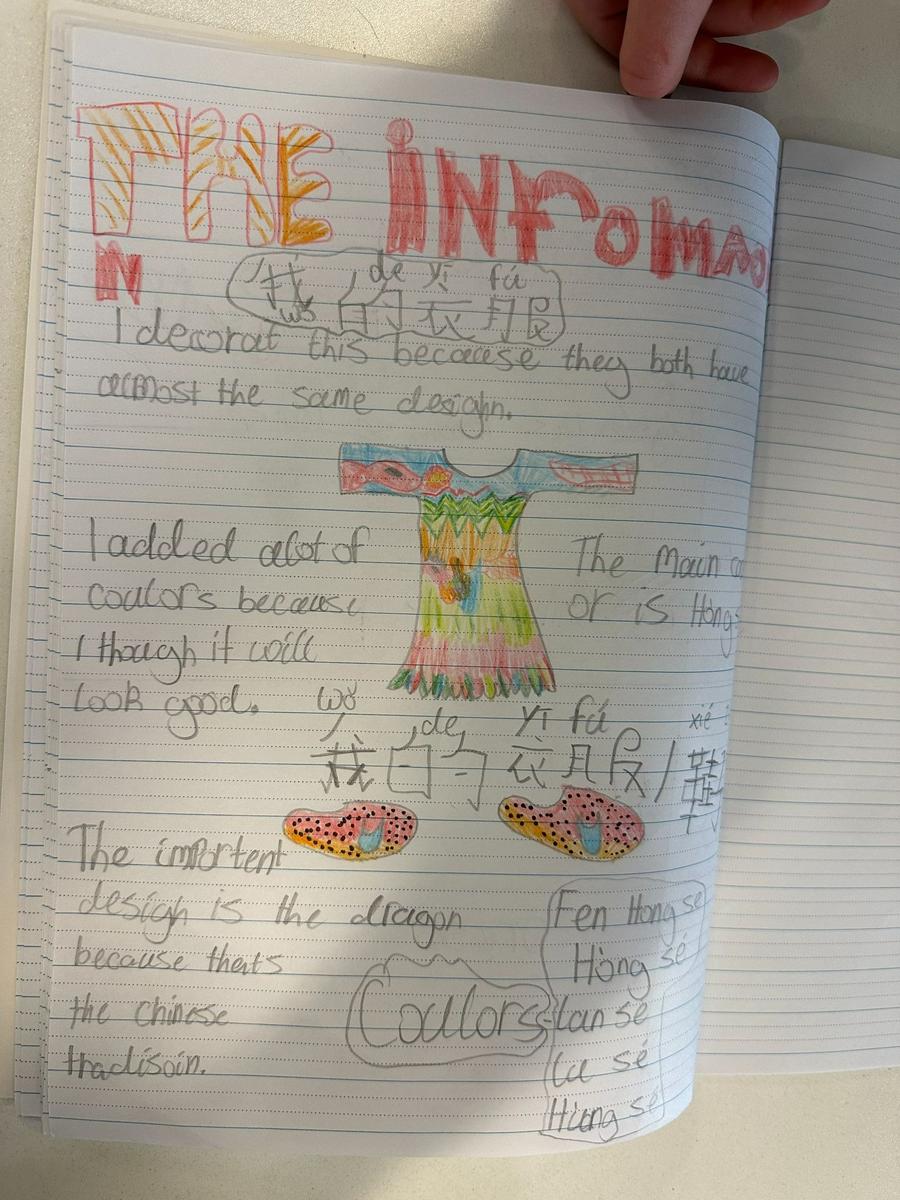 THE INFOMATIO
N
wǒ de yī fú
我的衣服
I decorat this because they both have
almost the same desighn.
I added alot of
coulors because
I though it will
look good.
The Main
or is Hóng
wǒ de yī fú xié
我的衣服/鞋
The importent
desigh is the dragon
because thats
the chinese
tradisoin.
Coulors
Fen Hong se
Hóng sé
lan sé
Lu sé